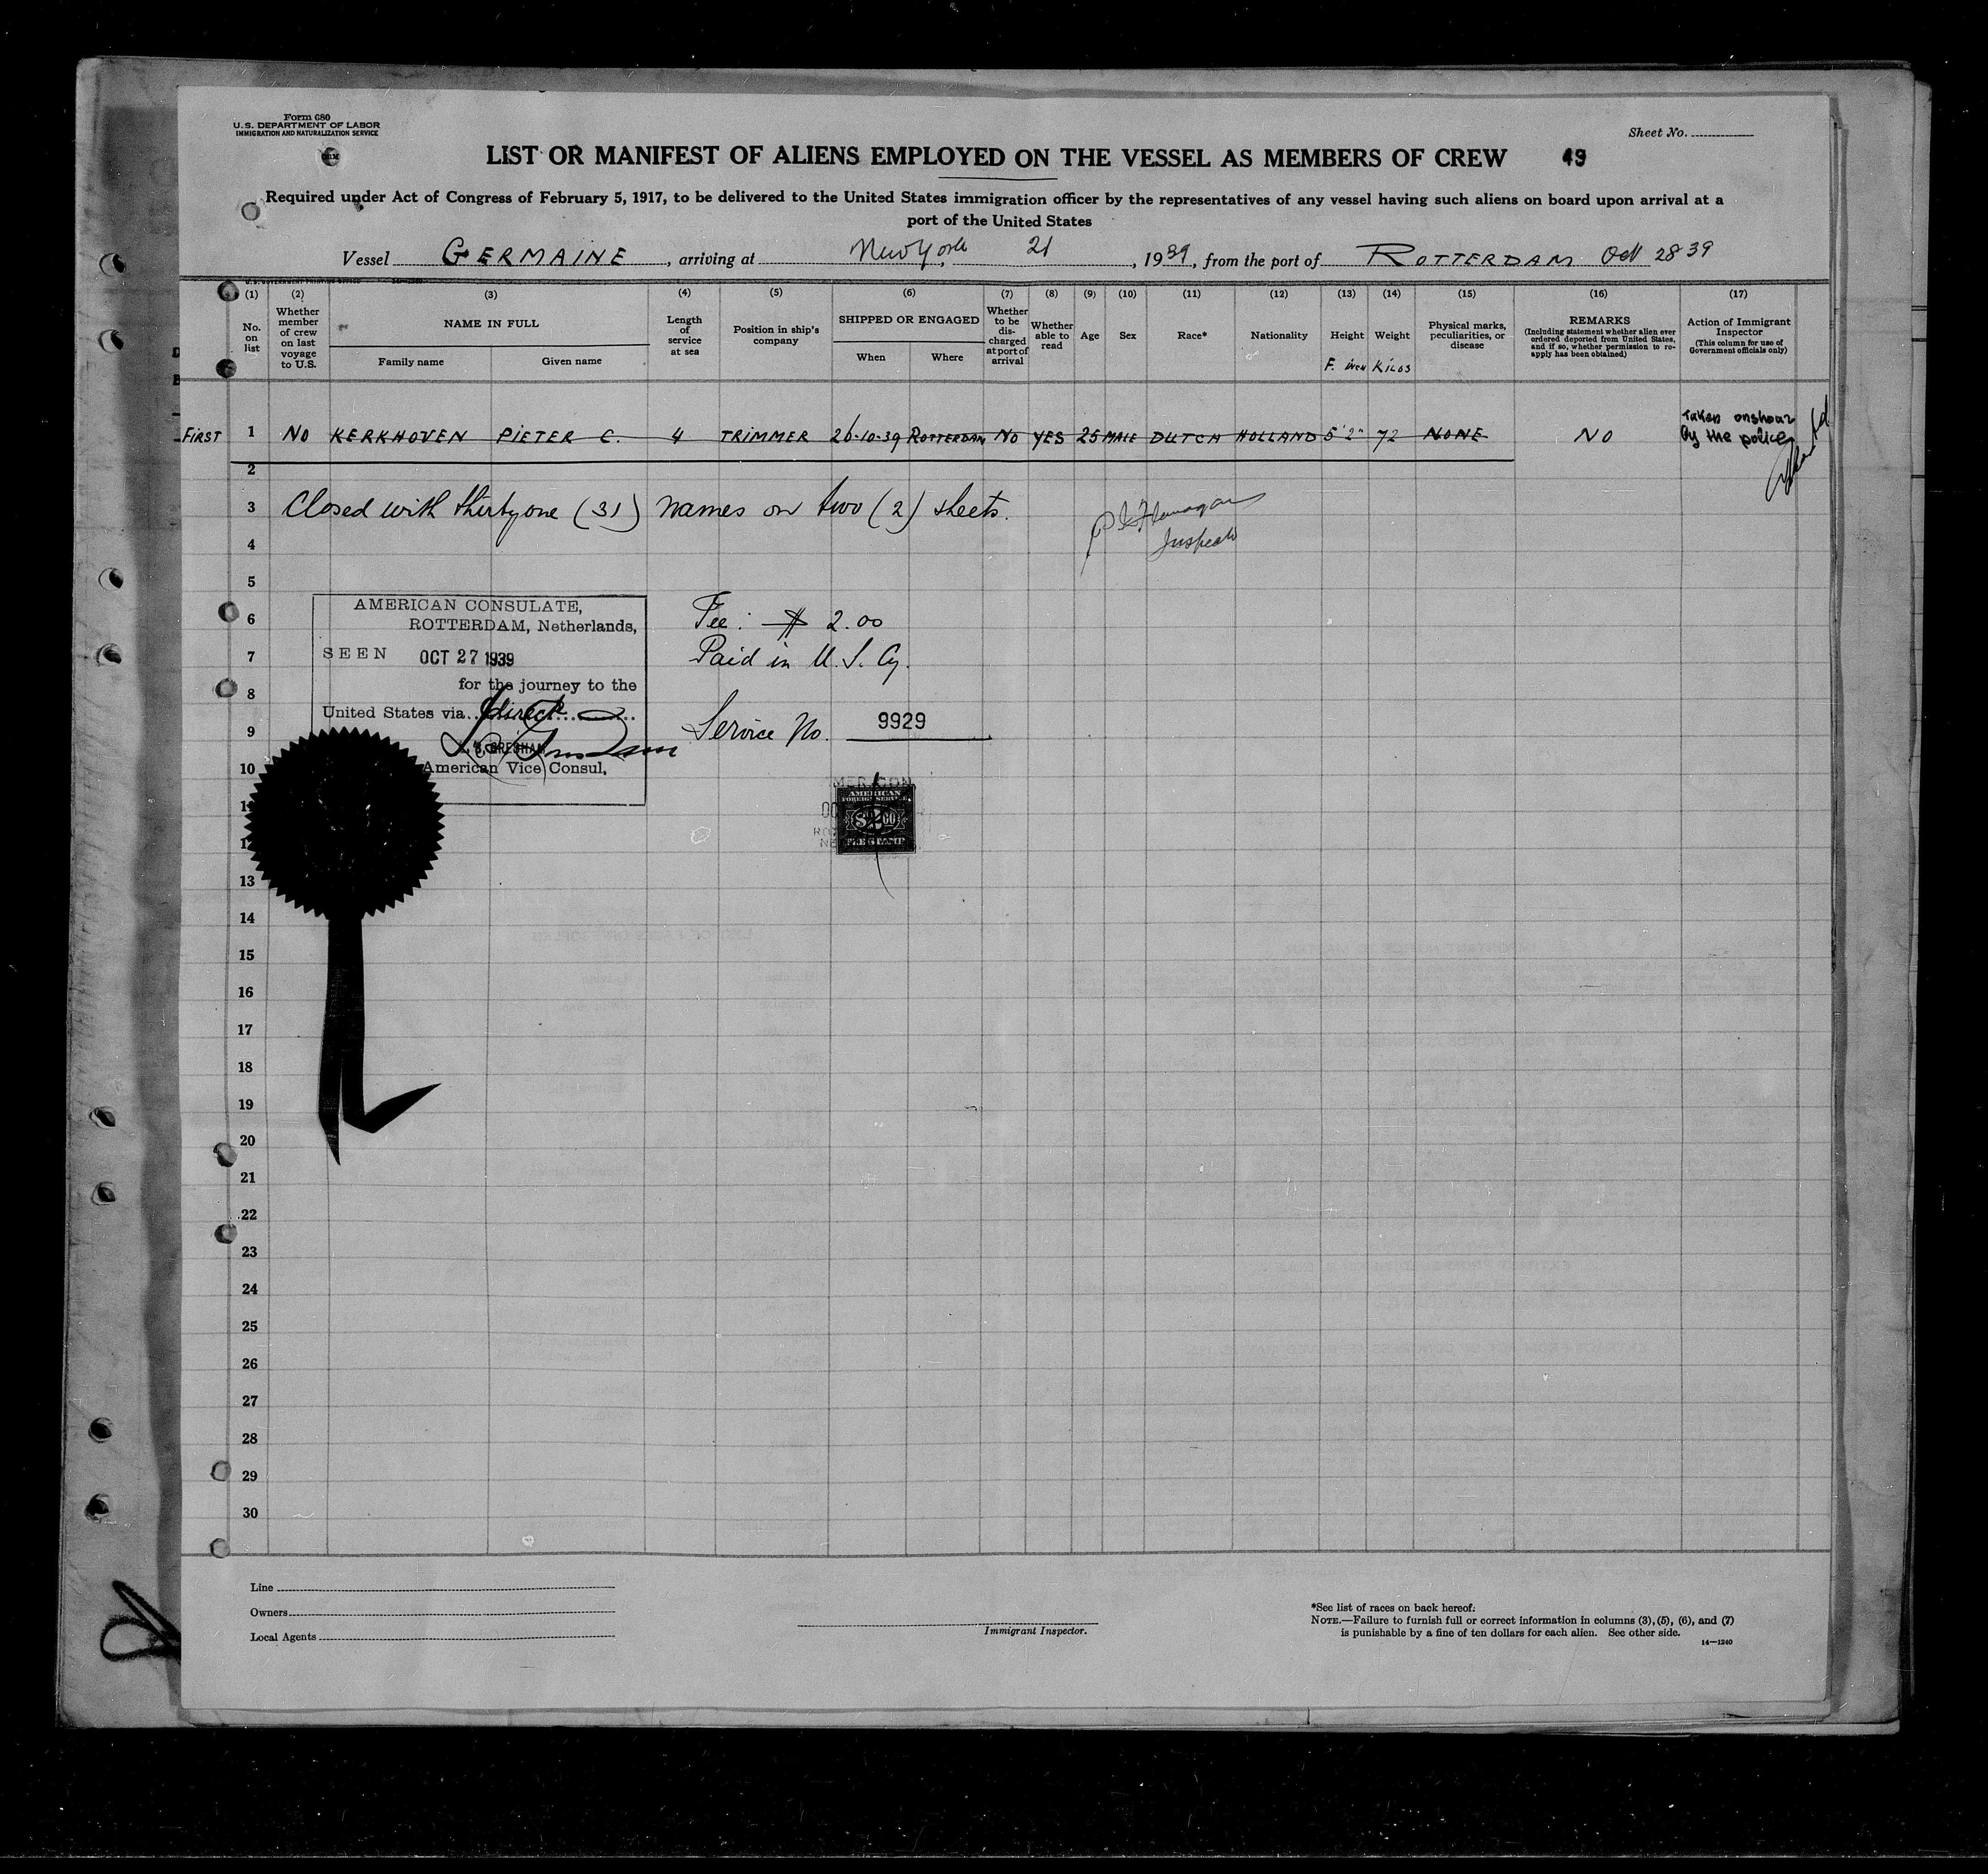 Form 680
U.S. DEPARTMENT OF LABOR
IMMIGRATION AND NATURALIZATION SERVICE
Sheet No.
LIST OR MANIFEST OF ALIENS EMPLOYED ON THE VESSEL AS MEMBERS OF CREW 49
Required under Act of Congress of February 5, 1917, to be delivered to the United States immigration officer by the representatives of any vessel having such aliens on board upon arrival at a
port of the United States
Vessel GERMAINE, arriving at New York, 21, 1939, from the port of ROTTERDAM Oct 28 39
(1) (2) (3) (4) (5) (6) (7) (8) (9) (10) (11) (12) (13) (14) (15) (16) (17)
No. on list
Whether member of crew on last voyage to U.S.
NAME IN FULL
Family name Given name
Length of service at sea
Position in ship's company
SHIPPED OR ENGAGED
When Where
Whether to be discharged at port of arrival
Whether able to read
Age
Sex
Race*
Nationality
Height
F. inch
Weight
KILOS
Physical marks, peculiarities, or disease
REMARKS
(Including statement whether alien ever ordered deported from United States, and if so, whether permission to re-apply has been obtained)
Action of Immigrant Inspector
(This column for use of Government officials only)
FIRST 1 NO KERKHOVEN PIETER C. 4 TRIMMER 26-10-39 ROTTERDAM NO YES 25 MALE DUTCH HOLLAND 5'2" 72 NONE NO Taken onshoar
by the police
2
3 Closed with thirty one (31) names on two (2) sheets.
Inspector
4
5
AMERICAN CONSULATE,
6 ROTTERDAM, Netherlands,
Fee: $ 2.00
7 SEEN OCT 27 1939
Paid in U. S. Cy.
8 for the journey to the
United States via direct
9 Service No. 9929
GRESHAM
10 American Vice Consul,
AMERICAN
FOREIGN SERVICE
FEE STAMP
13
14
15
16
17
18
19
20
21
22
23
24
25
26
27
28
29
30
Line
Owners
Local Agents
Immigrant Inspector.
*See list of races on back hereof.
NOTE.—Failure to furnish full or correct information in columns (3), (5), (6), and (7)
is punishable by a fine of ten dollars for each alien. See other side.
14—1240